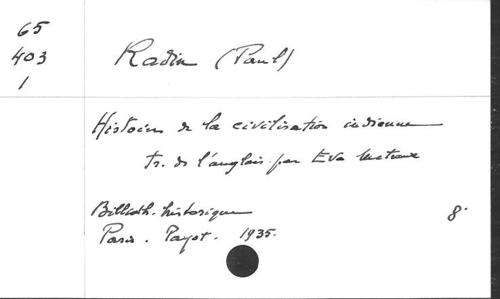 65
403
1
Radin (Paul)
Histoire de la civilisation indienne
tr. de l'anglais par Eva Metraux
Biblioth. historique
8°
Paris. Payot. 1935.